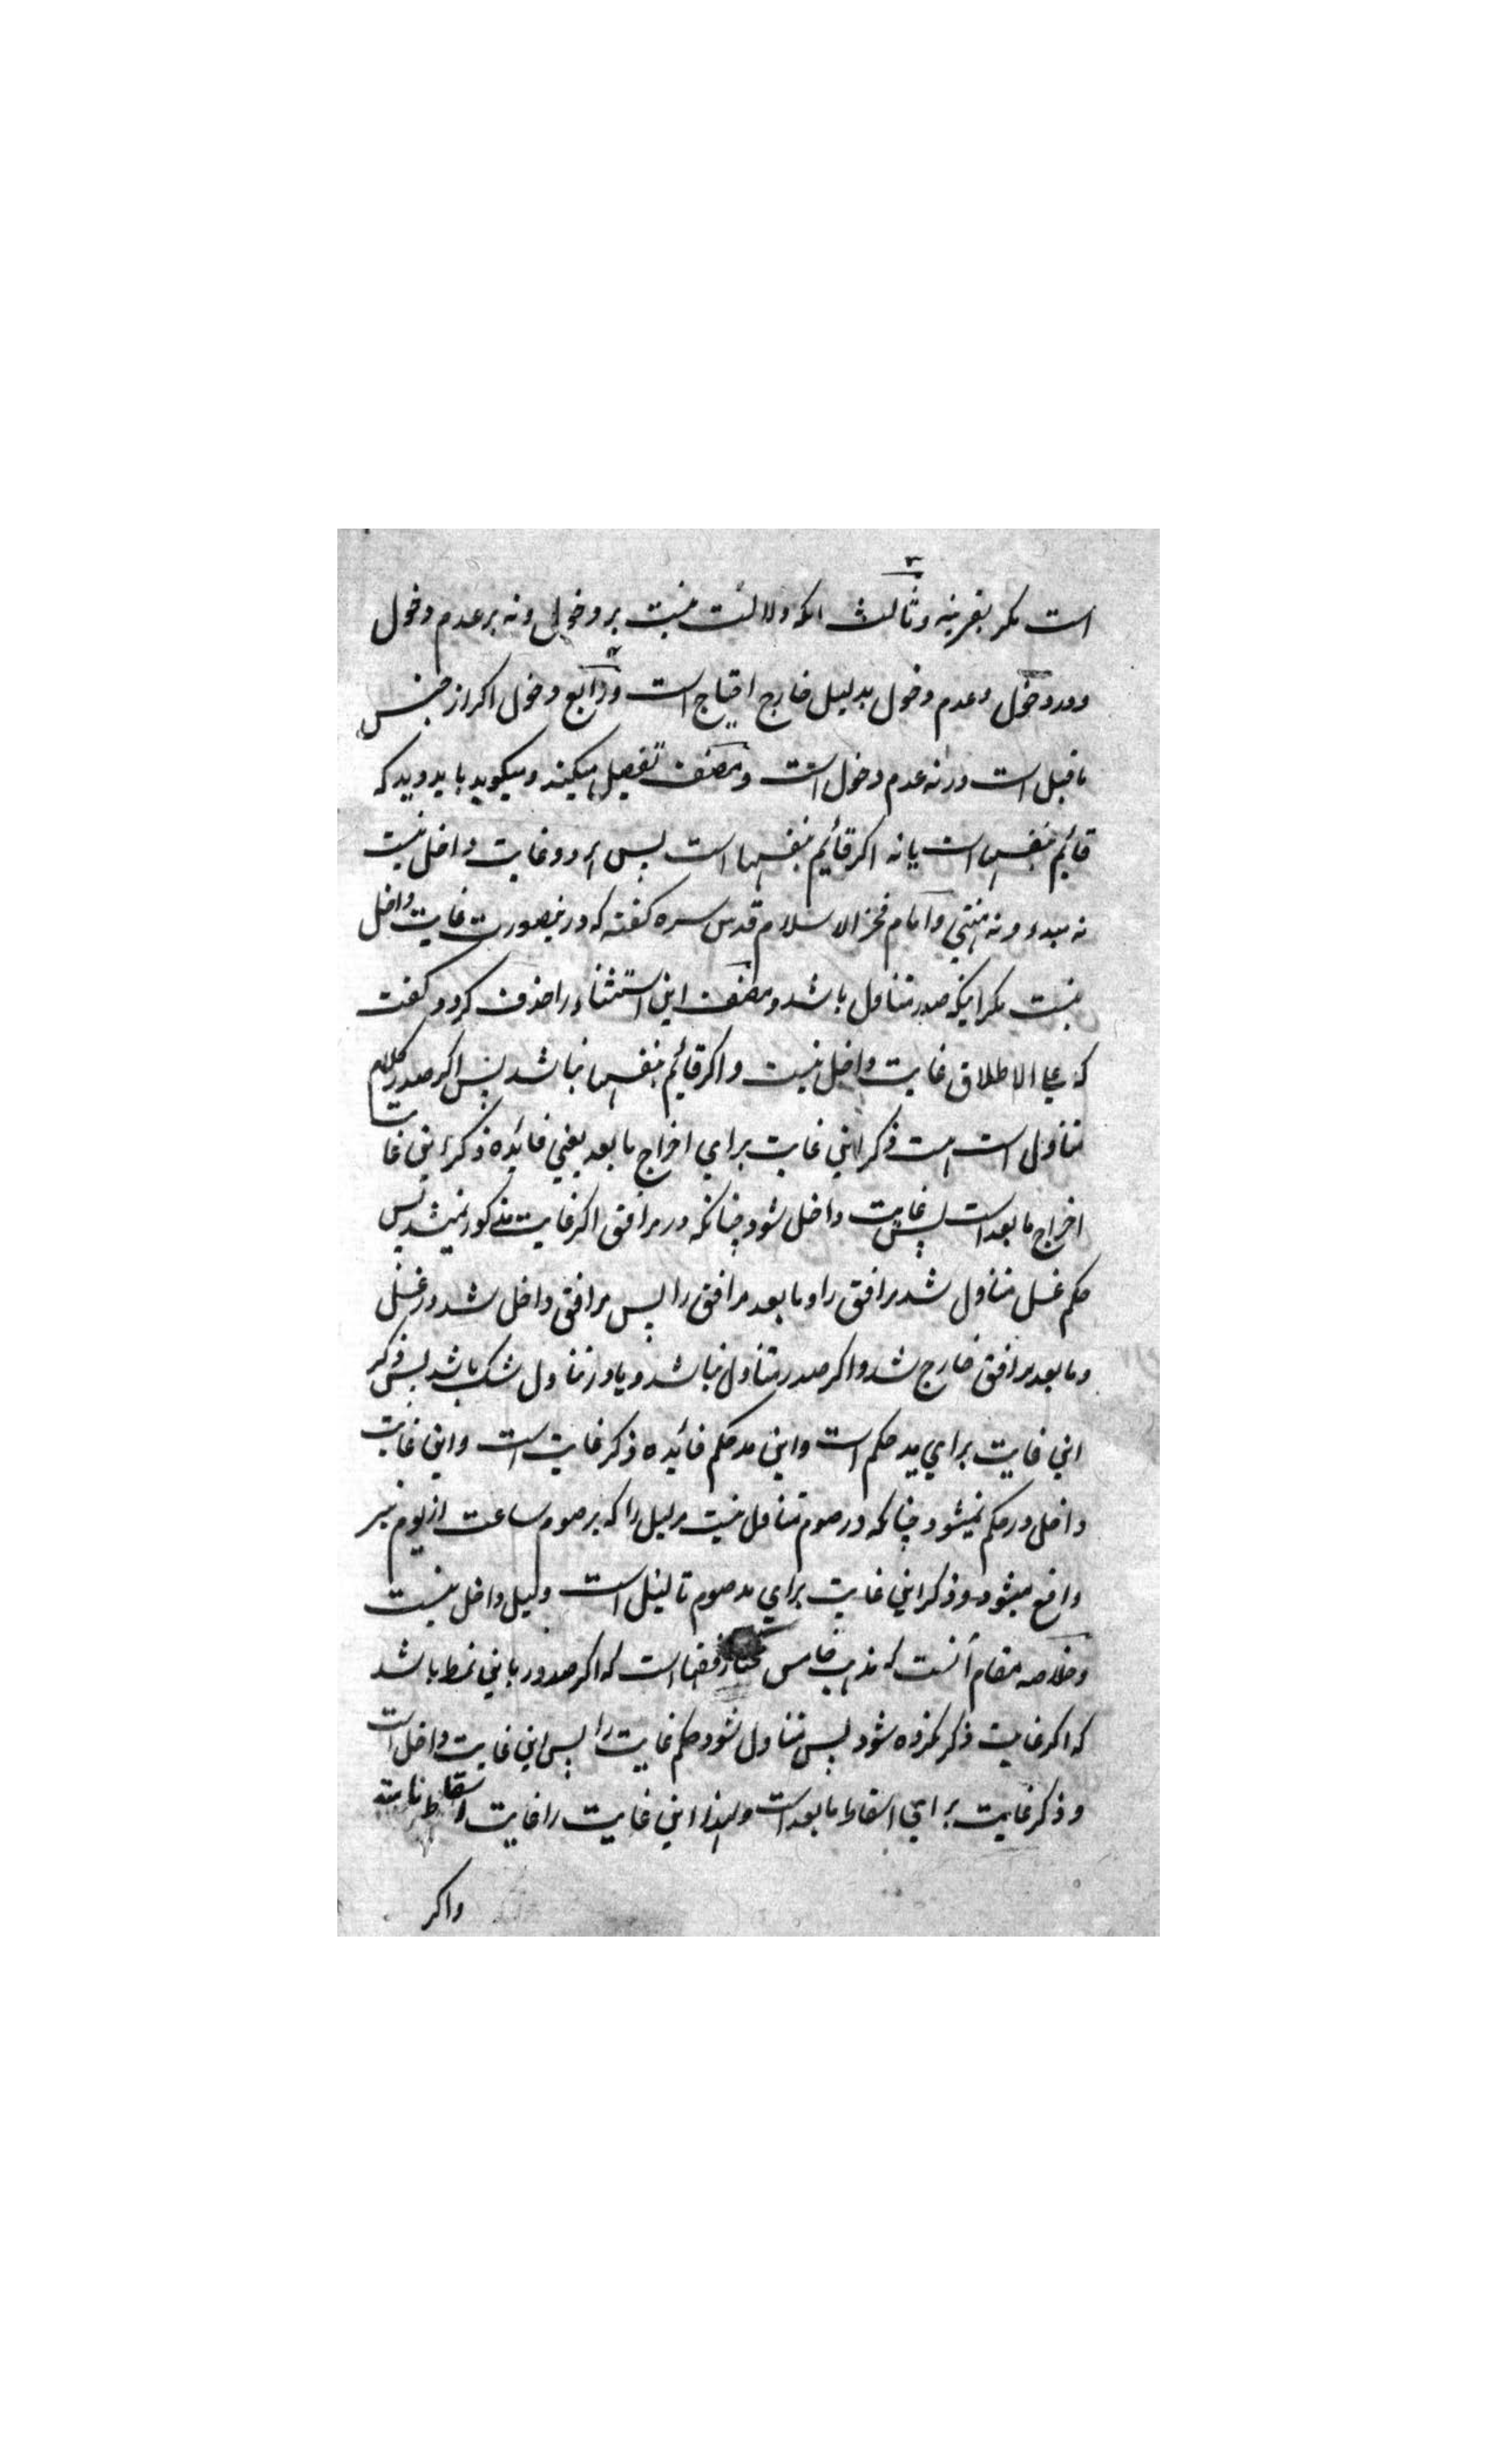 ۳
است مکر بقرینه و ثالث انکه دلالت نیست بر دخول و نه بر عدم دخول
۴
و در دخول و عدم دخول بدلیل خارج احتیاج است و رابع دخول اکر از جنس
ما قبل است و رنه عدم دخول است و مصنف تفصیل میکند و میکوید باید دید که
قائیم بنفسها است یا نه اکر قائیم بنفسها است پس هر دو غایت داخل نیست
نه مبدء و نه منتهي و امام فخر الاسلام قدس سره کفته که درینصورت غایت داخل
نیست مکر اینکه صدر متناول باشد و مصنف این استثناء را حذف کرد و کفت
که علی الاطلاق غایت داخل نیست و اکر قائیم بنفسها نباشد پس اکر صدر کلام
متناول است هست ذکر این غایت براي اخراج ما بعد یعني فائیده ذکر این غایت
اخراج ما بعد است پس غایت داخل شود چنانکه در مرافق اکر غایت مذکور نمیشد پس
حکم غسل متناول شد مرافق را و ما بعد مرافق را پس مرافق داخل شد در غسل
و ما بعد مرافق خارج شد و اکر صدر متناول نباشد و یا در تناول شک باشد پس ذکر
این غایت براي مد حکم است و این مد حکم فائیده ذکر غایت است و این غایت
داخل در حکم نمیشود چنانکه در صوم متناول نیست مر لیل را که بر صوم ساعت از یوم نیز
واقع میشود و ذکر این غایت براي مد صوم تا لیل است و لیل داخل نیست
و خلاصه مقام آنست که مذهب خامس مختار فقها است که اکر صدور باین نمط باشد
که اکر غایت ذکر نکرده شود پس متناول شود حکم غایت را پس این غایت داخل است
و ذکر غایت براي اسقاط ما بعد است و لهذا این غایت را غایت اسقاط نامند
و اکر